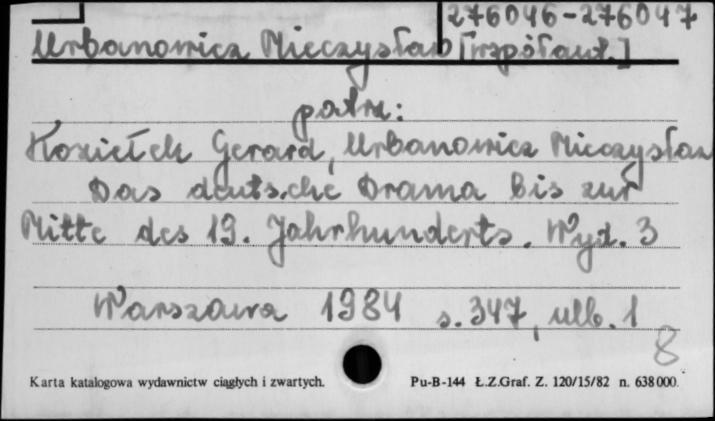 276046-276047
Urbanowicz Mieczysław [współaut.]
patrz:
Koziełek Gerard, Urbanowicz Mieczysław
Das deutsche Drama bis zur
Mitte des 19. Jahrhunderts. Wyd. 3
Warszawa 1984 s. 347, ulb. 1
8
Karta katalogowa wydawnictw ciągłych i zwartych. Pu-B-144 Ł.Z.Graf. Z. 120/15/82 n. 638000.